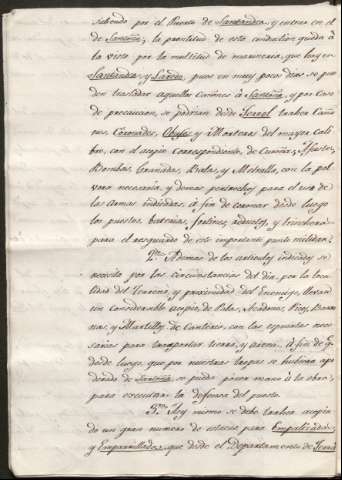 saliendo por el Puerto de Santander, y entren en el
de Santoña; la prontitud de esta conducion queda à
la vista por la multitud de marineria, que hay en
Santander, y Laredo, pues en muy pocos dias se pue-
den trasladar aquellos Cañones à Santoña; y por caso
de precaucion, se podrian desde Ferrol traher Caño-
nes, Coronadas, Obuses y Morteros del mayor Cali-
bre, con el acopio correspondiente, de Cureñas, Afustes,
Bombas, Granadas, Balas, y Metralla, con la pol-
vora necesaria, y demas pertrechos para el uso de
las Armas indicadas, à fin de coronar desde luego
los puestos, baterias, fortines, reductos, y trincheras
para el resguardo de este importante punto militar.
2.º Ademas de los articulos indicados se
necesita por las circunstancias del dia, por la loca-
lidad del Terreno, y proximidad del Enemigo, llevar
un considerable acopio de Palas, Azadones, Picos, Barre-
nas, y Martillos de Canteros, con las espuertas nece-
sarias para transportar tierra, y arena. A fin de q.
desde luego, que por nuestras tropas se hubiera apo-
derado de Santoña, se pueda poner mano à la obra,
para executar la defensa del puesto.
3.º Hoy mismo se debe traher acopio
de un gran numero de estacas para Empalizadas,
y Emparrillados, que desde el Departamento de Ferrol